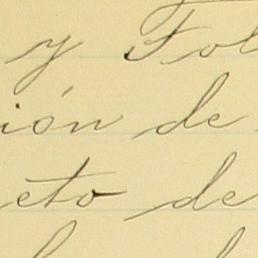 y Fol
ión de
eto de